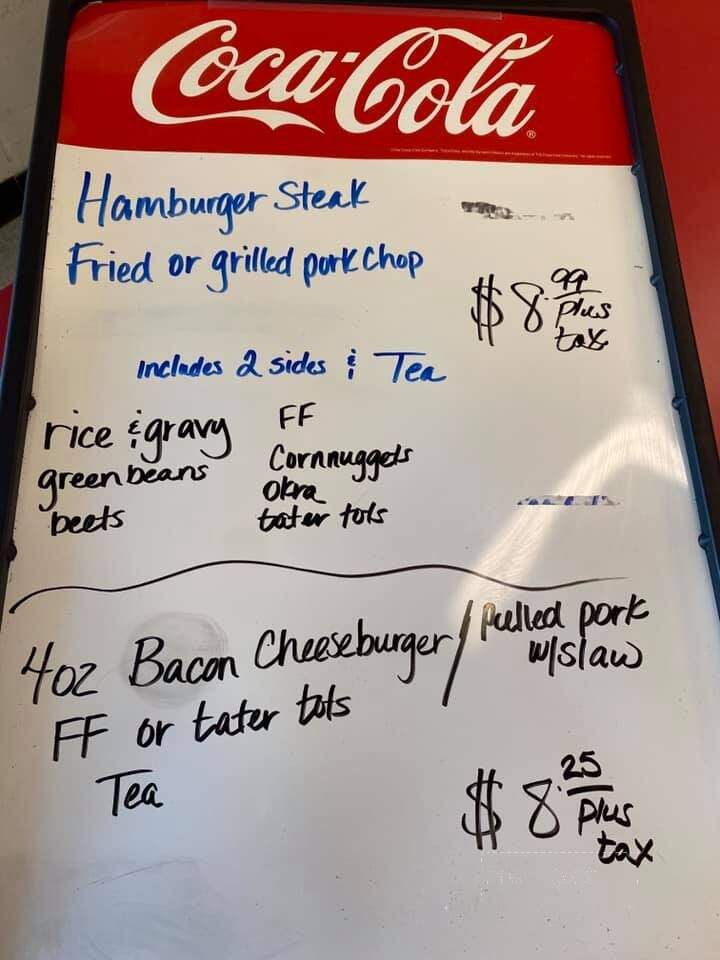 Coca-Cola
Hamburger Steak
Fried or grilled pork chop
$8.99 plus tax
includes 2 sides & Tea
rice & gravy
green beans
beets
FF
Cornnuggets
Okra
tater tots
4oz Bacon Cheeseburger / Pulled pork w/slaw
FF or tater tots
Tea
$8.25 plus tax